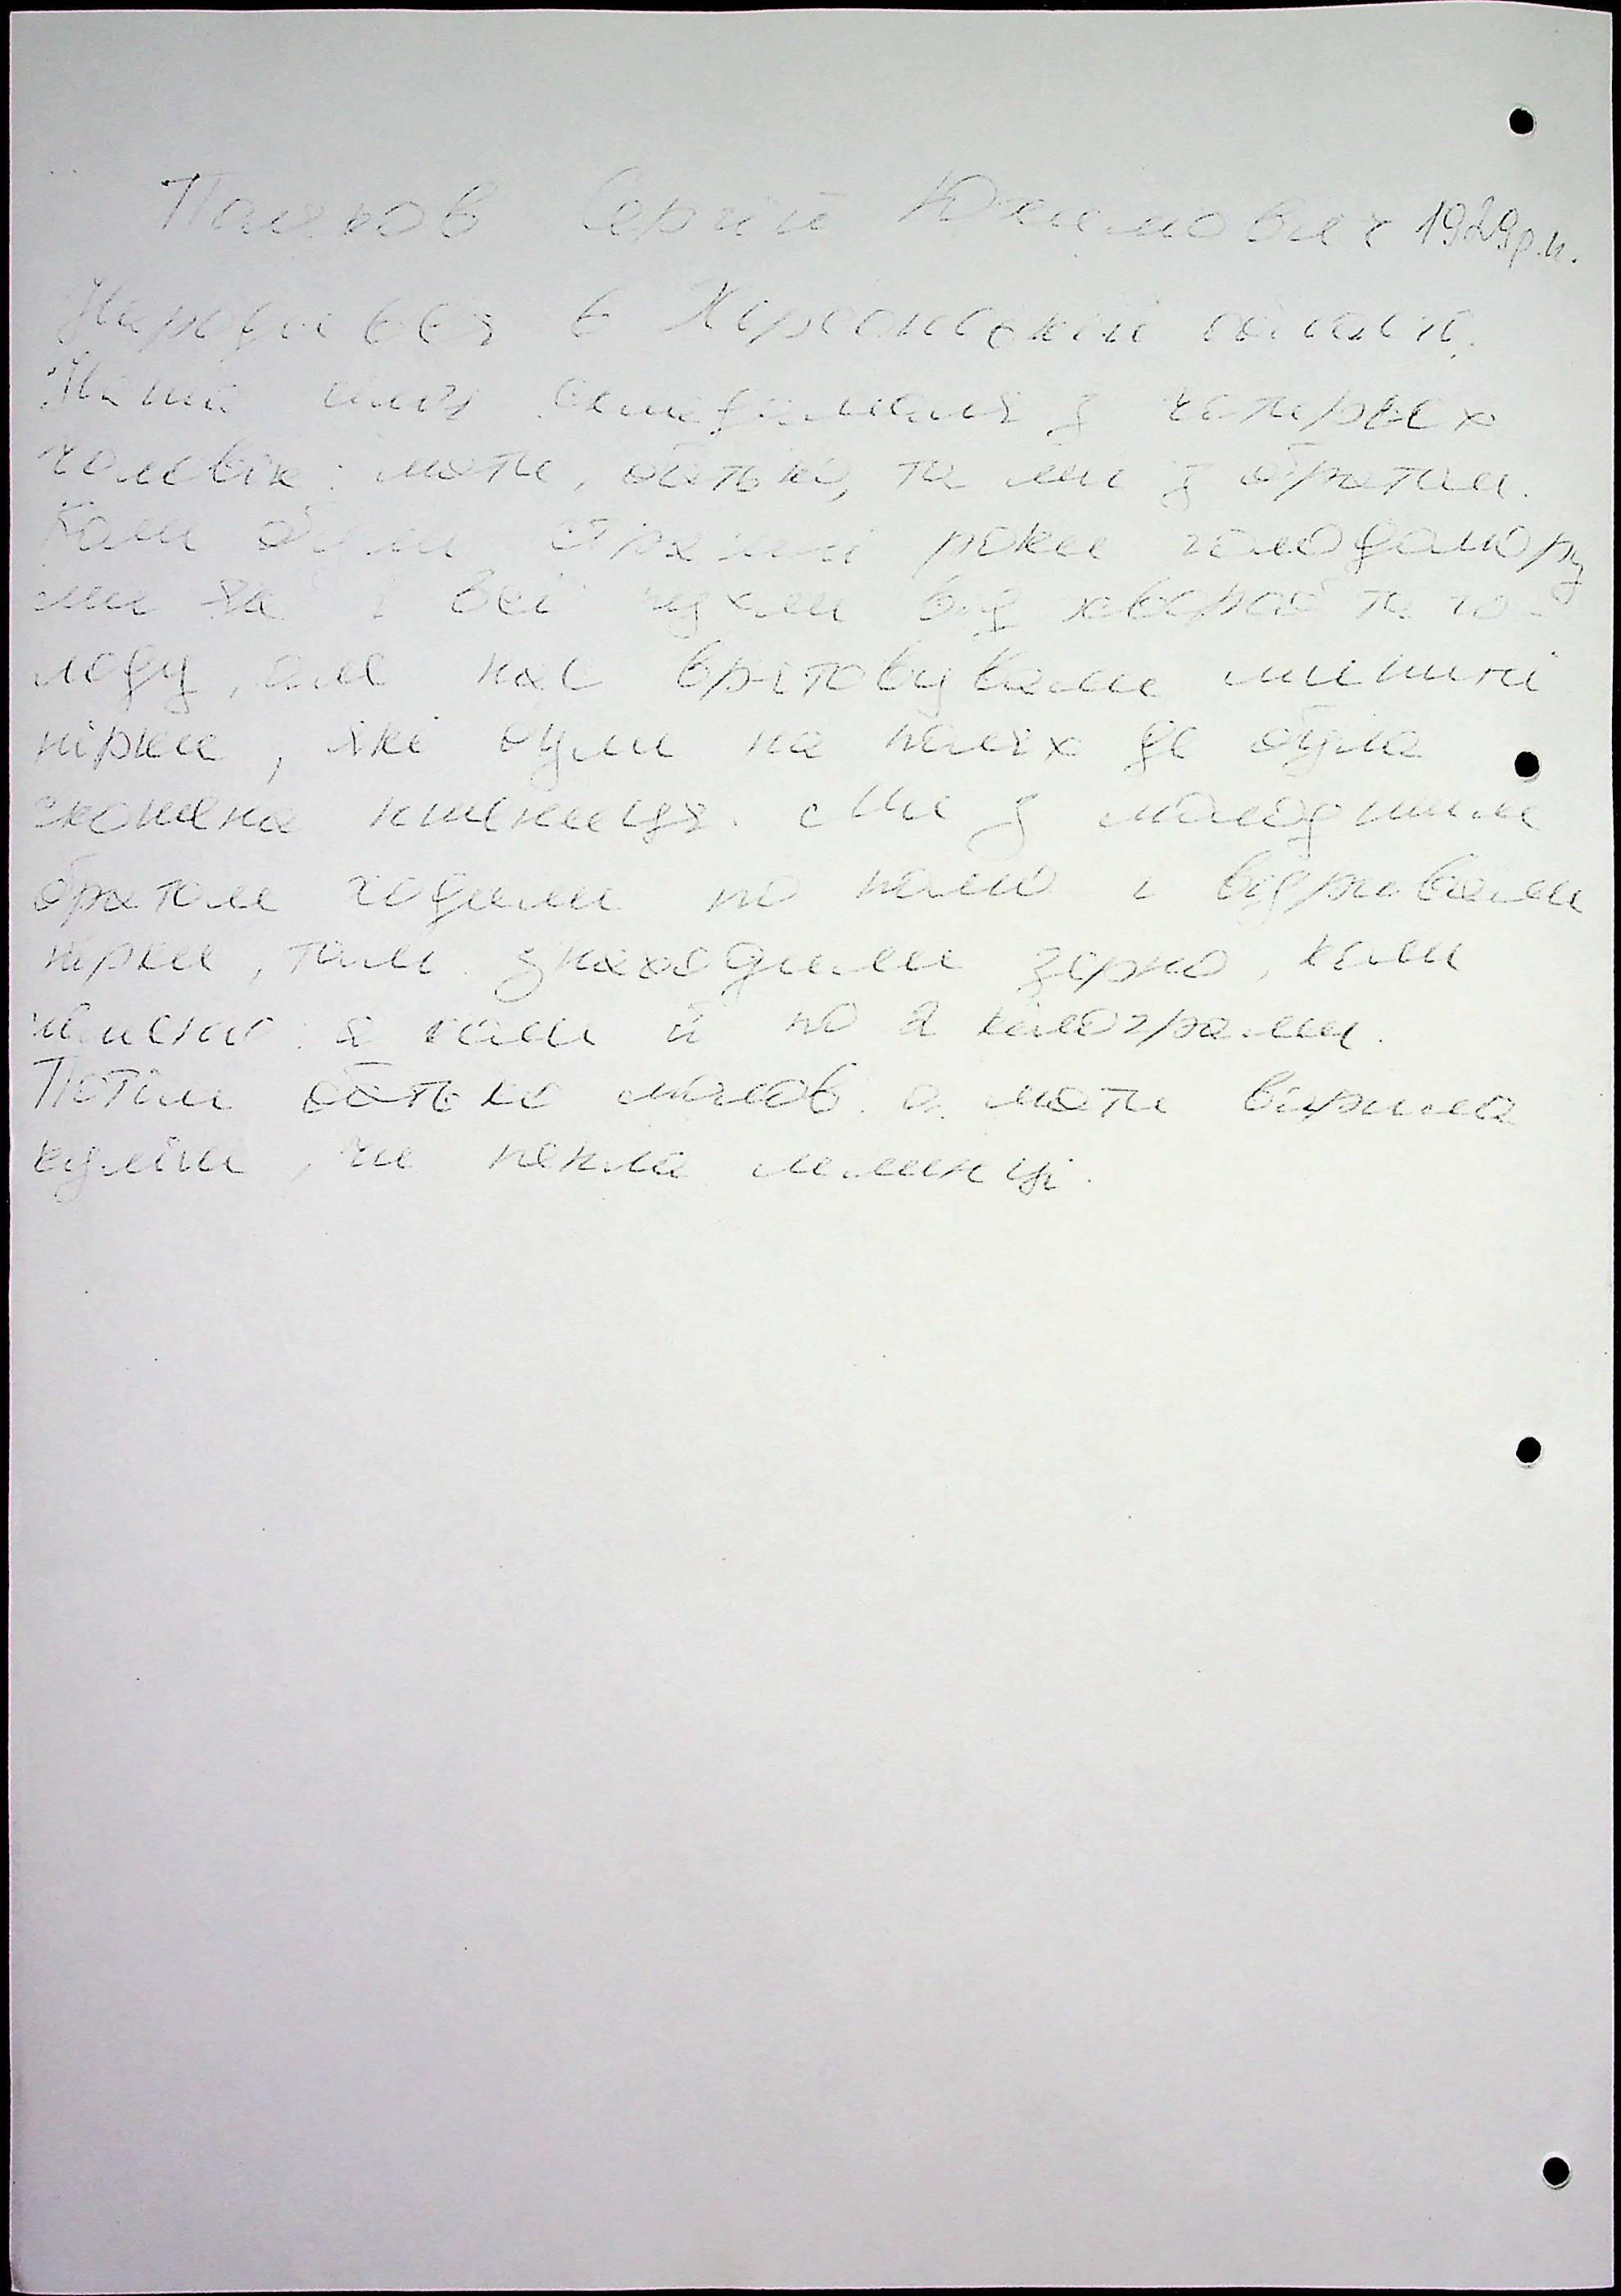 Сергій Юхимович 1929 р.н.
Народився в Херсонській області.
Наша сім'я складалася з чотирьох
чоловік: мати, батько, та ми з братом.
Коли були страшні роки голодомору
ми як і всі пухли від хвороб та го-
лоду, але нас врятовували мишині
нірки, які були на полях де була
скошена пшениця. Ми з молодшим
братом ходили по полю і відривали
нірки, там знаходили зерно, коли
а коли й по 2 кілограми.
Потім батько молов а мати варила
куліш, чи пекла млинці.